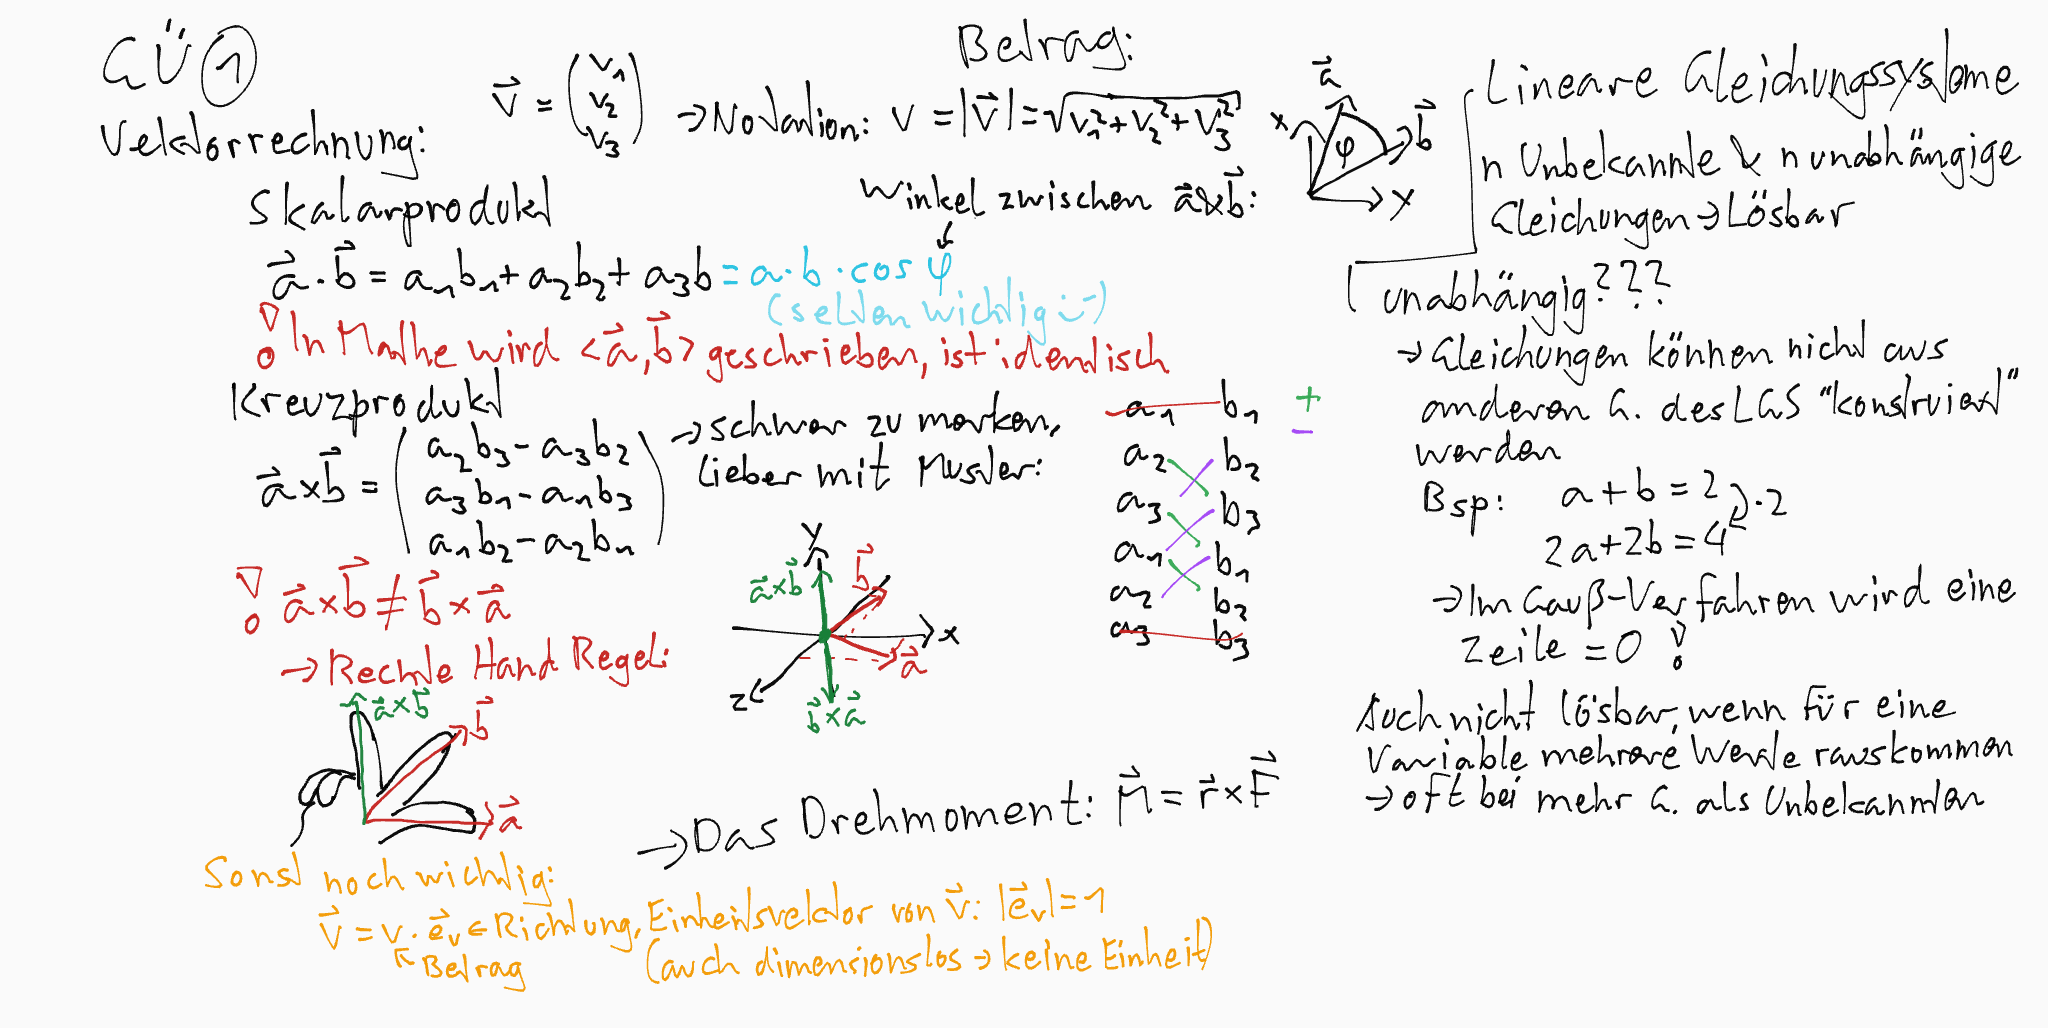 GÜ 1
Vektorrechnung:
v⃗ = (v₁ v₂ v₃) → Notation: v = |v⃗| = √(v₁² + v₂² + v₃²)
Betrag:
Skalarprodukt
Winkel zwischen a⃗ & b⃗:
a⃗ · b⃗ = a₁b₁ + a₂b₂ + a₃b = a · b · cos φ
(selten wichtig :-)
! In Mathe wird <a⃗, b⃗> geschrieben, ist identisch
Kreuzprodukt
a⃗ × b⃗ = (a₂b₃ - a₃b₂
a₃b₁ - a₁b₃
a₁b₂ - a₂b₁)
→ schwer zu merken,
lieber mit Muster:
a₁ b₁ +
-
a₂ b₂
a₃ b₃
a₁ b₁
a₂ b₂
a₃ b₃
! a⃗ × b⃗ ≠ b⃗ × a⃗
→ Rechte Hand Regel:
a⃗ × b⃗
b⃗
a⃗
y
a⃗ × b⃗
b⃗
x
a⃗
z
b⃗ × a⃗
→ Das Drehmoment: M⃗ = r⃗ × F⃗
Sonst noch wichtig:
v⃗ = v · e⃗ᵥ ← Richtung, Einheitsvektor von v⃗: |e⃗ᵥ| = 1
Betrag
(auch dimensionslos → keine Einheit)
a⃗
x
φ
b⃗
y
Lineare Gleichungssysteme
n Unbekannte & n unabhängige
Gleichungen → Lösbar
unabhängig???
→ Gleichungen können nicht aus
anderen G. des LGS "konstruiert"
werden
Bsp: a + b = 2
· 2
2a + 2b = 4
→ Im Gauß-Verfahren wird eine
Zeile = 0 !
Auch nicht lösbar, wenn für eine
Variable mehrere Werte rauskommen
→ oft bei mehr G. als Unbekannten